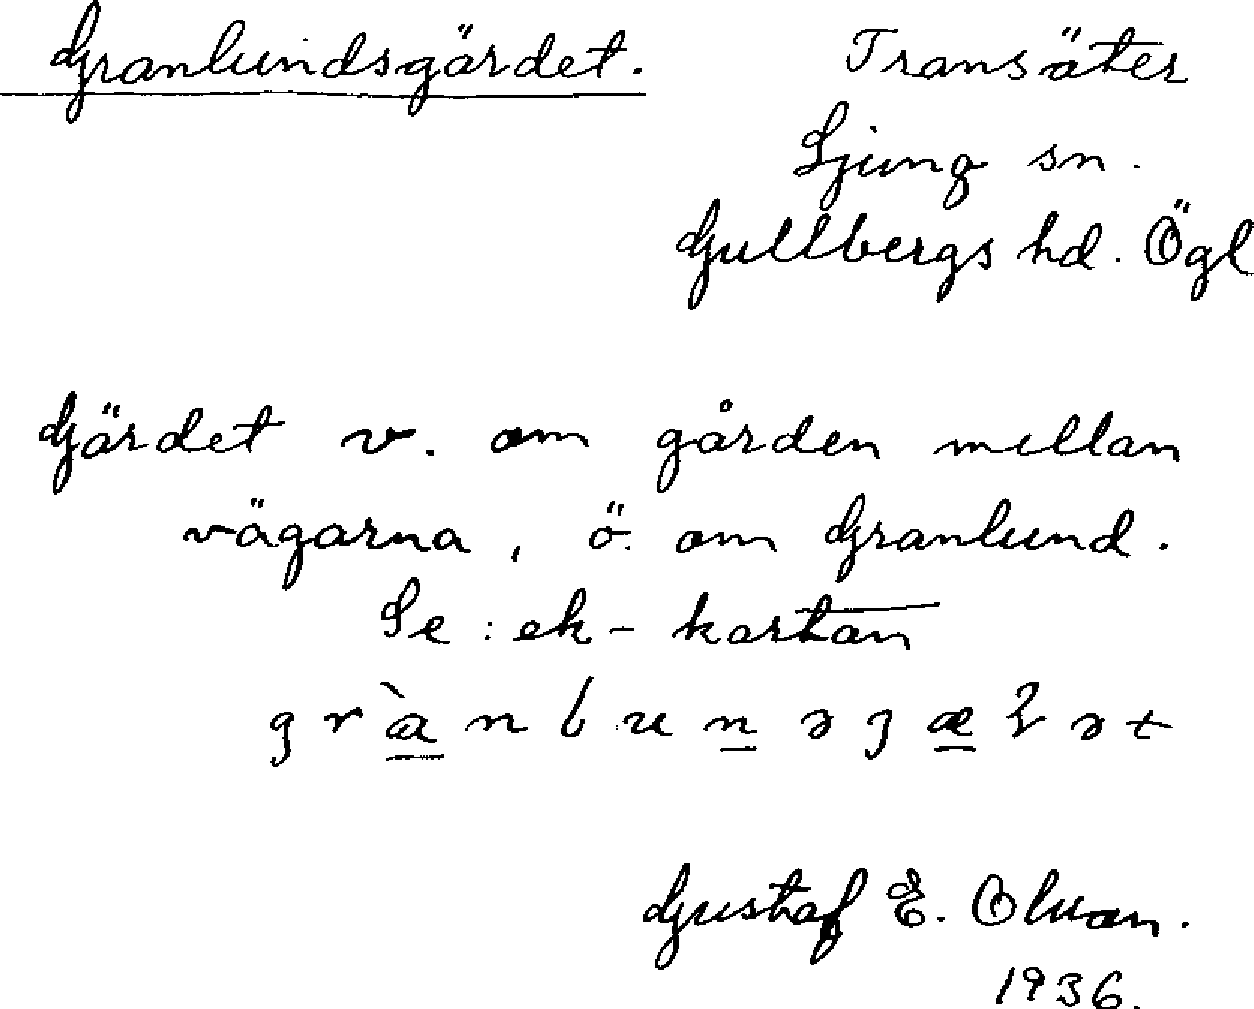 Granlundsgärdet. Transäter
Ljung sn.
Gullbergs hd. Ögl
Gärdet v. om gården mellan
vägarna, ö. om Granlund.
Se: ek-kartan
Gustaf E.
1936.